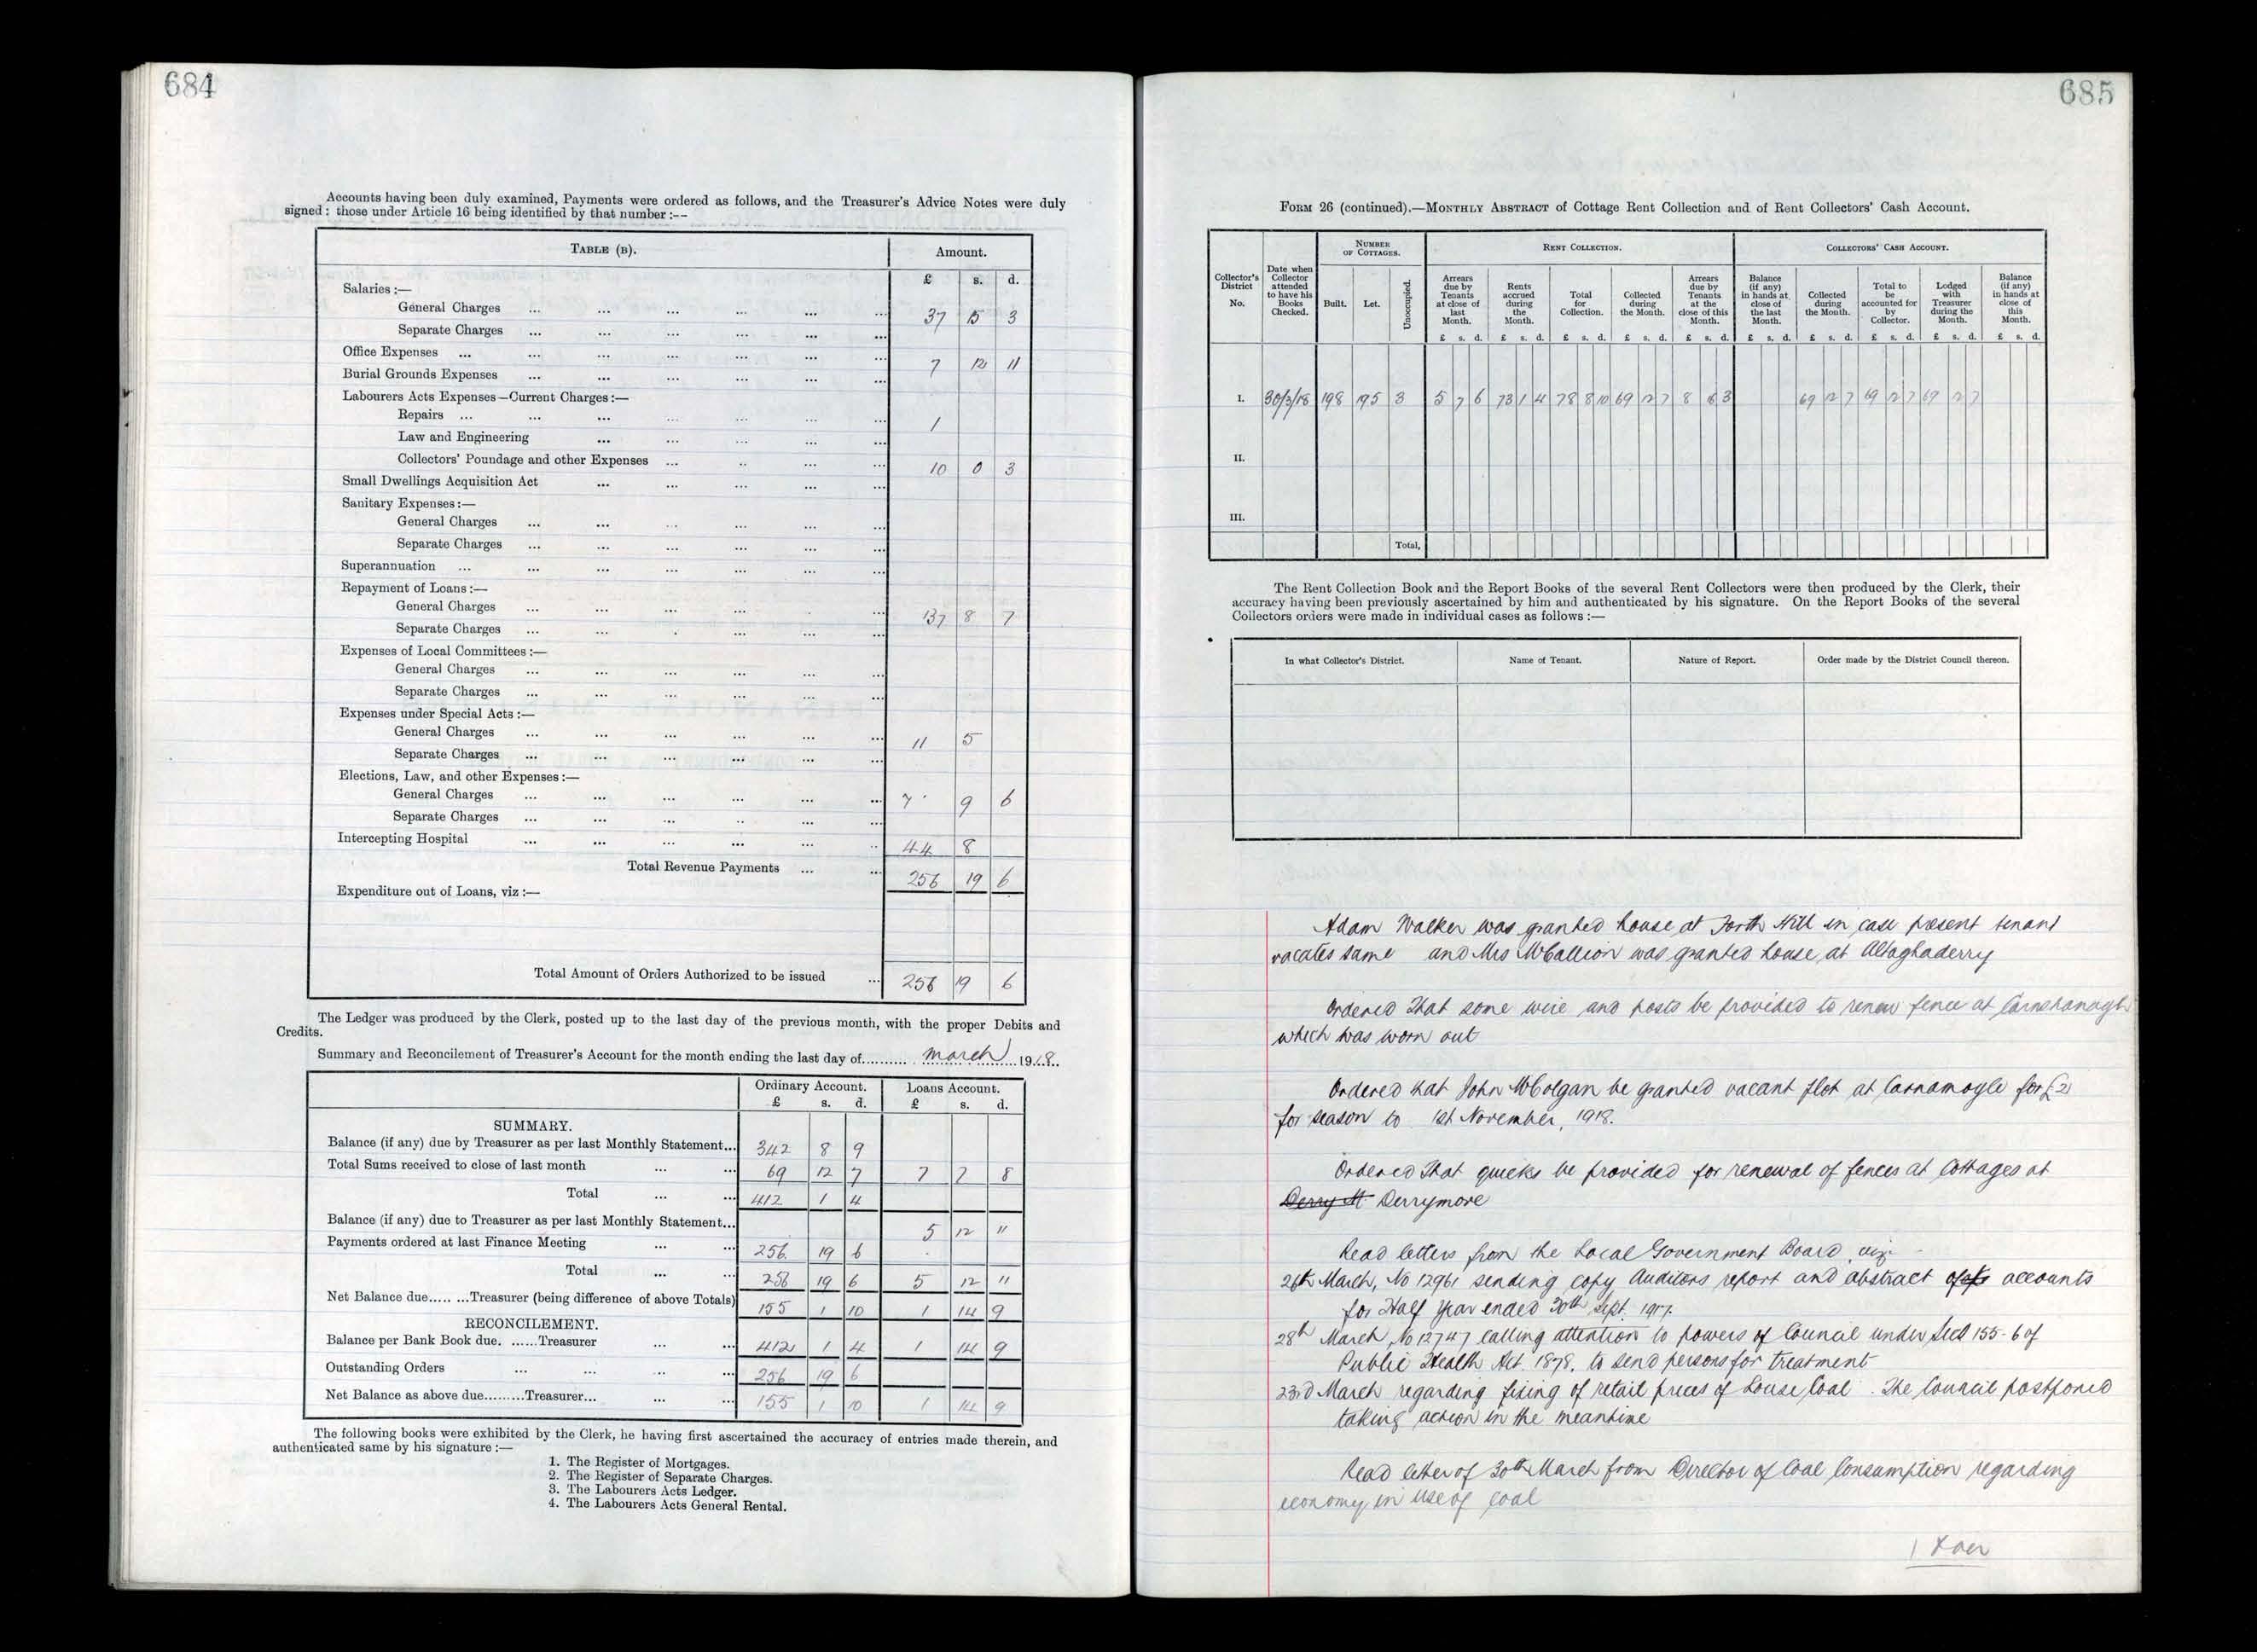 684
Accounts having been duly examined, Payments were ordered as follows, and the Treasurer's Advice Notes were duly
signed : those under Article 16 being identified by that number :--
TABLE (B). Amount.
£ s. d.
Salaries :—
General Charges ... ... ... ... ... ... 37 15 3
Separate Charges ... ... ... ... ... ...
Office Expenses ... ... ... ... ... ... 7 12 11
Burial Grounds Expenses ... ... ... ... ... ...
Labourers Acts Expenses—Current Charges :—
Repairs ... ... ... ... ... ... 1
Law and Engineering ... ... ... ... ...
Collectors' Poundage and other Expenses ... .. ... ... 10 0 3
Small Dwellings Acquisition Act ... ... ... ... ...
Sanitary Expenses :—
General Charges ... ... ... ... ... ...
Separate Charges ... ... ... ... ... ...
Superannuation ... ... ... ... ... ...
Repayment of Loans :—
General Charges ... ... ... ... . ... 137 8 7
Separate Charges ... ... . ... ... ...
Expenses of Local Committees :—
General Charges ... ... ... ... ... ...
Separate Charges ... ... ... ... ... ...
Expenses under Special Acts :—
General Charges ... ... ... ... ... ... 11 5
Separate Charges ... ... ... ... ... ...
Elections, Law, and other Expenses :—
General Charges ... ... ... ... ... ... 7 9 6
Separate Charges ... ... ... .. ... ...
Intercepting Hospital ... ... ... ... ... .. 44 8
Total Revenue Payments ... ... 256 19 6
Expenditure out of Loans, viz :—
Total Amount of Orders Authorized to be issued ... 256 19 6
The Ledger was produced by the Clerk, posted up to the last day of the previous month, with the proper Debits and
Credits.
Summary and Reconcilement of Treasurer's Account for the month ending the last day of.......... March 1918.
Ordinary Account. Loans Account.
£ s. d. £ s. d.
SUMMARY.
Balance (if any) due by Treasurer as per last Monthly Statement... 342 8 9
Total Sums received to close of last month ... ... 69 12 7 7 7 8
Total ... ... 412 1 4
Balance (if any) due to Treasurer as per last Monthly Statement... 5 12 11
Payments ordered at last Finance Meeting ... ... 256 19 6
Total ... ... 256 19 6 5 12 11
Net Balance due..... ...Treasurer (being difference of above Totals) 155 1 10 1 14 9
RECONCILEMENT.
Balance per Bank Book due. ......Treasurer ... ... 412 1 4 1 14 9
Outstanding Orders ... ... .. ... 256 19 6
Net Balance as above due.........Treasurer... ... ... 155 1 10 1 14 9
The following books were exhibited by the Clerk, he having first ascertained the accuracy of entries made therein, and
authenticated same by his signature :—
1. The Register of Mortgages.
2. The Register of Separate Charges.
3. The Labourers Acts Ledger.
4. The Labourers Acts General Rental.
685
FORM 26 (continued).—MONTHLY ABSTRACT of Cottage Rent Collection and of Rent Collectors' Cash Account.
NUMBER OF COTTAGES. RENT COLLECTION. COLLECTORS' CASH ACCOUNT.
Collector's District No. Date when Collector attended to have his Books Checked. Built. Let. Unoccupied. Arrears due by Tenants at close of last Month. Rents accrued during the Month. Total for Collection. Collected during the Month. Arrears due by Tenants at the close of this Month. Balance (if any) in hands at close of the last Month. Collected during the Month. Total to be accounted for by Collector. Lodged with Treasurer during the Month. Balance (if any) in hands at close of this Month.
£ s. d. £ s. d. £ s. d. £ s. d. £ s. d. £ s. d. £ s. d. £ s. d. £ s. d. £ s. d.
I. 30/3/18 198 195 3 5 7 6 73 1 4 78 8 10 69 12 7 8 16 3 69 12 7 69 12 7 69 12 7
II.
III.
Total,
The Rent Collection Book and the Report Books of the several Rent Collectors were then produced by the Clerk, their
accuracy having been previously ascertained by him and authenticated by his signature. On the Report Books of the several
Collectors orders were made in individual cases as follows :—
In what Collector's District. Name of Tenant. Nature of Report. Order made by the District Council thereon.
Adam Walker was granted house at Forth Hill in case present tenant
vacates same and Mrs McCallion was granted house at Altaghaderry
Ordered that some wire and posts be provided to renew fence at Carnshanagh
which was worn out
Ordered that John McColgan be granted vacant plot at Carnamoyle for £2
for season to 1st November, 1918.
Ordered that quicks be provided for renewal of fences at Cottages at
Derry M Derrymore
Read letters from the Local Government Board viz -
26th March, No 12961 sending copy Auditors report and abstract of accounts
for Half Year ended 30th Sept. 1917.
28th March, No 12747 calling attention to powers of Council under Sects 155-6 of
Public Health Act. 1878. to send persons for treatment
23rd March regarding fixing of retail prices of House Coal. The Council postponed
taking action in the meantime
Read letter of 30th March from Director of Coal Consumption regarding
economy in use of coal